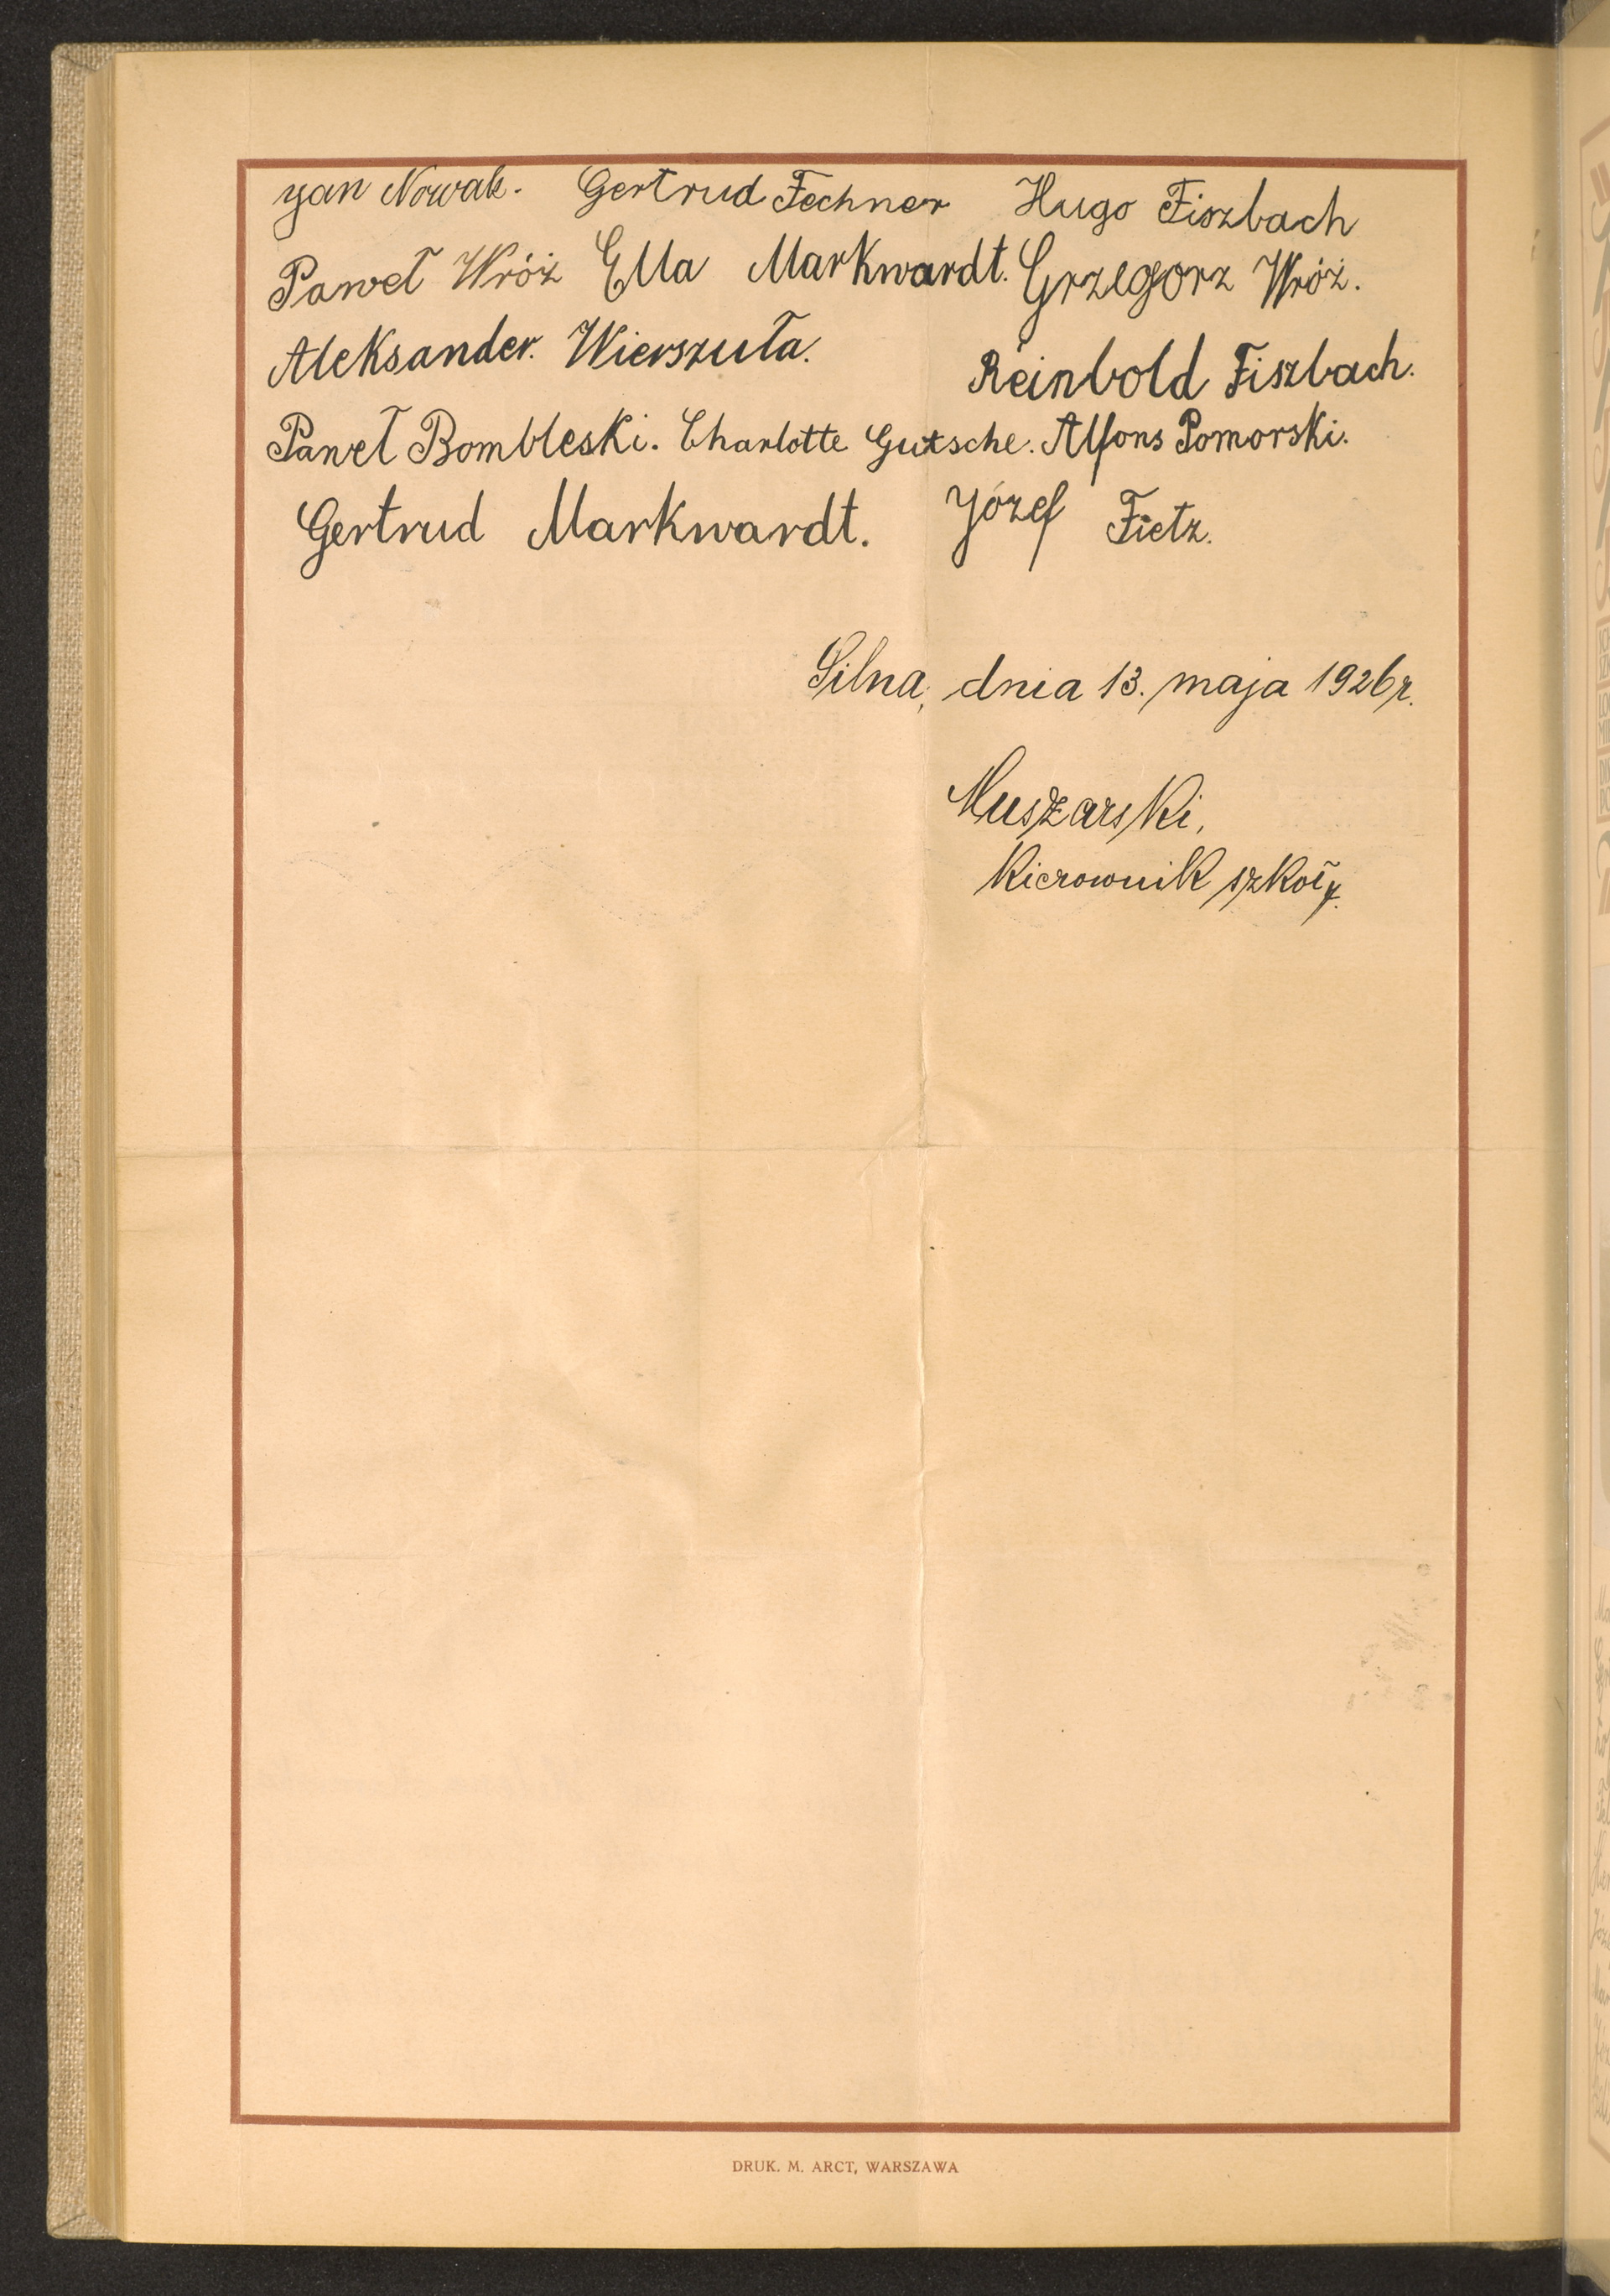 Jan Nowak. Gertrud Fechner Hugo Fiszbach
Paweł Wróż Ella Markwardt. Grzegorz Wróż.
Aleksander. Wierszuła. Reinbold Fiszbach.
Paweł Bombleski. Charlotte Gutsche. Alfons Pomorski.
Gertrud Markwardt. Józef Fietz.
Silna, dnia 13. maja 1926 r.
Muszarski,
Kierownik szkoły.
DRUK. M. ARCT, WARSZAWA